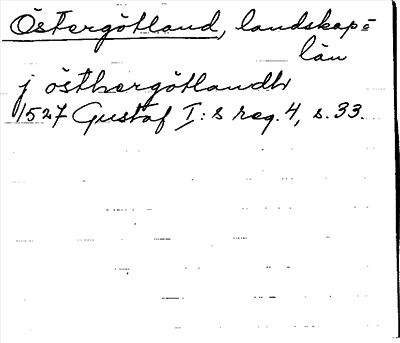 Östergötland, landskap o
län
j östhergötlandh
1527 Gustaf I:s reg. 4, s. 33.